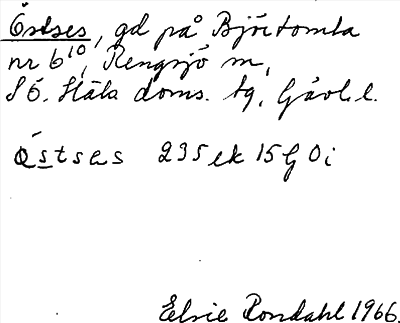 Östses, gd på Björtomta
nr 6¹⁰, Rengsjö sn,
SÖ. Häls doms. tg, Gävl. l.
Östses 235 ek 15 G 0 i
Elsie Rondahl 1966.